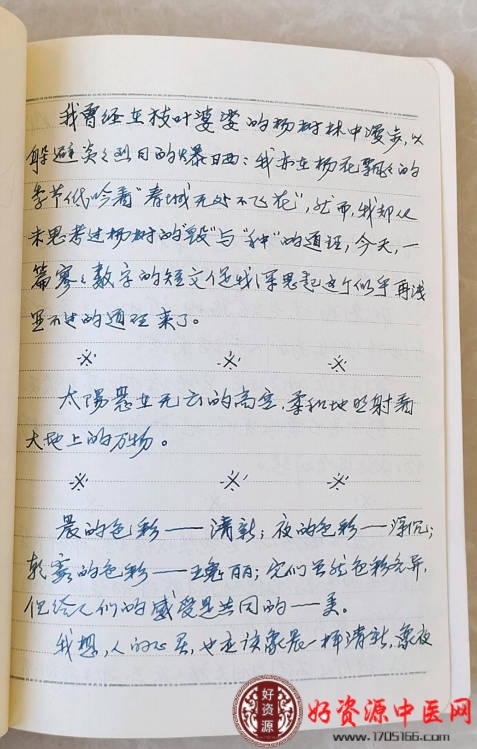 我曾经在枝叶婆娑的杨树林中漫步,以
躲避炎炎烈日的爆晒;我亦在杨花飘飘的
季节低吟着“春城无处不飞花”,然而,我却从
未思考过杨树的“毁”与“种”的道理,今天,一
篇寥寥数字的短文促我深思起这个似乎再浅
显不过的道理来了。
※ ※ ※
太阳悬在无云的高空,柔和地照射着
大地上的万物。
※ ※ ※
晨的色彩——清新;夜的色彩——深沉;
朝霞的色彩——瑰丽;它们虽然色彩各异,
但给人们的感受是共同的——美。
我想,人的心灵,也应该象晨一样清新,象夜
好资源
好资源中医网
www.1705166.com